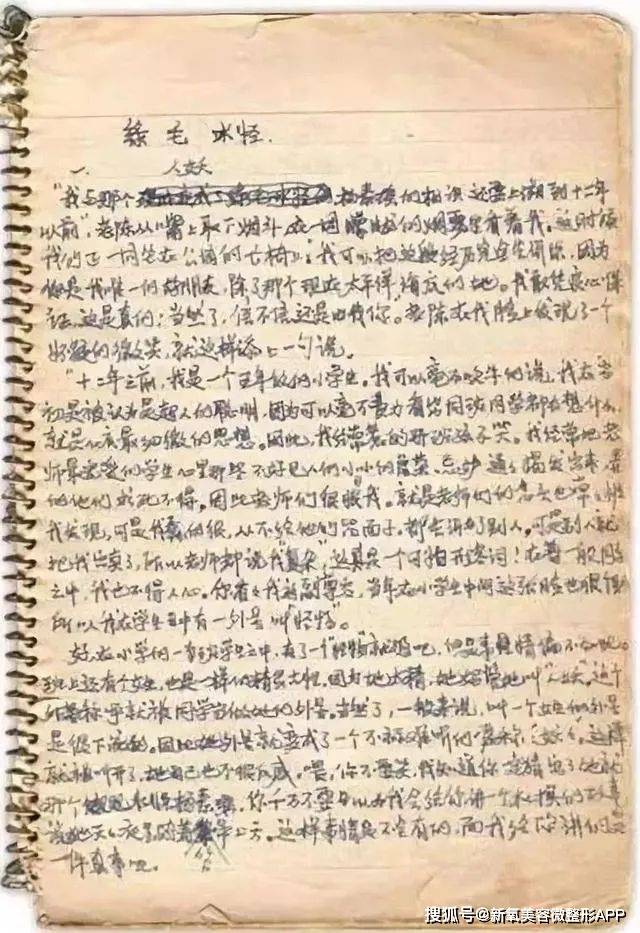 绿毛水怪.
一、 人妖
"我与那个 杨素瑶的相识还要上溯到十二年
以前",老陈从嘴上取下烟斗,在一团朦胧的烟雾里看着我。这时候
我们正一同坐在公园的长椅上:"我可以把这段经历完全告诉你,因为
你是我唯一的好朋友,除了那个现在太平洋海底的她。我敢凭良心保
证,这是真的;当然了,信不信还是由你。老陈在我脸上发现了一个
怀疑的微笑,就这样添上一句说。
"十二年之前,我是一个五年级的小学生。我可以毫不吹牛的说,我在当
初是被认为是超人的聪明,因为可以毫不费力看出同班同学都在想什么,
就是心底最细微的思想。因此,我经常惹的那班孩子笑。我经常把老
师最宠爱的学生心里那些不好见人的小小的虚荣、忌妒通通揭发出来,
的他们求死不得。因此老师们很恨我。就是老师们的念头也常常
我发现,可是我蠢的很,从不给他们留面子,都告诉了别人。可是别人就
把我出卖了,所以老师都说我"复杂",这真是个可怕形容词!在一般同学
之中,我也不得人心。你看看我这副尊容,当年在小学生中间这张脸也很
所以我在学生中有一外号叫"怪物"。
好,在小学的一班学生之中,有了一个"怪物"就够了吧,但是事情偏不如此。
班上还有个女生,也是一样的精灵古怪。因为她太精,她妈管她叫"人妖"。这个
称呼就被同学当做她的外号。当然了,一般来说,叫一个女生的外号
是很下流的。因此她外号就变成了一个不算难听的昵称"妖妖"。这样
就被叫开了,她自己也不很反感。喂,你不要笑,我知道你
那个 你千万不要以为我会给你讲一个 的故事
这样事情是不会有的,而我给你讲的是
一件真事呢。
搜狐号@新氧美容微整形APP